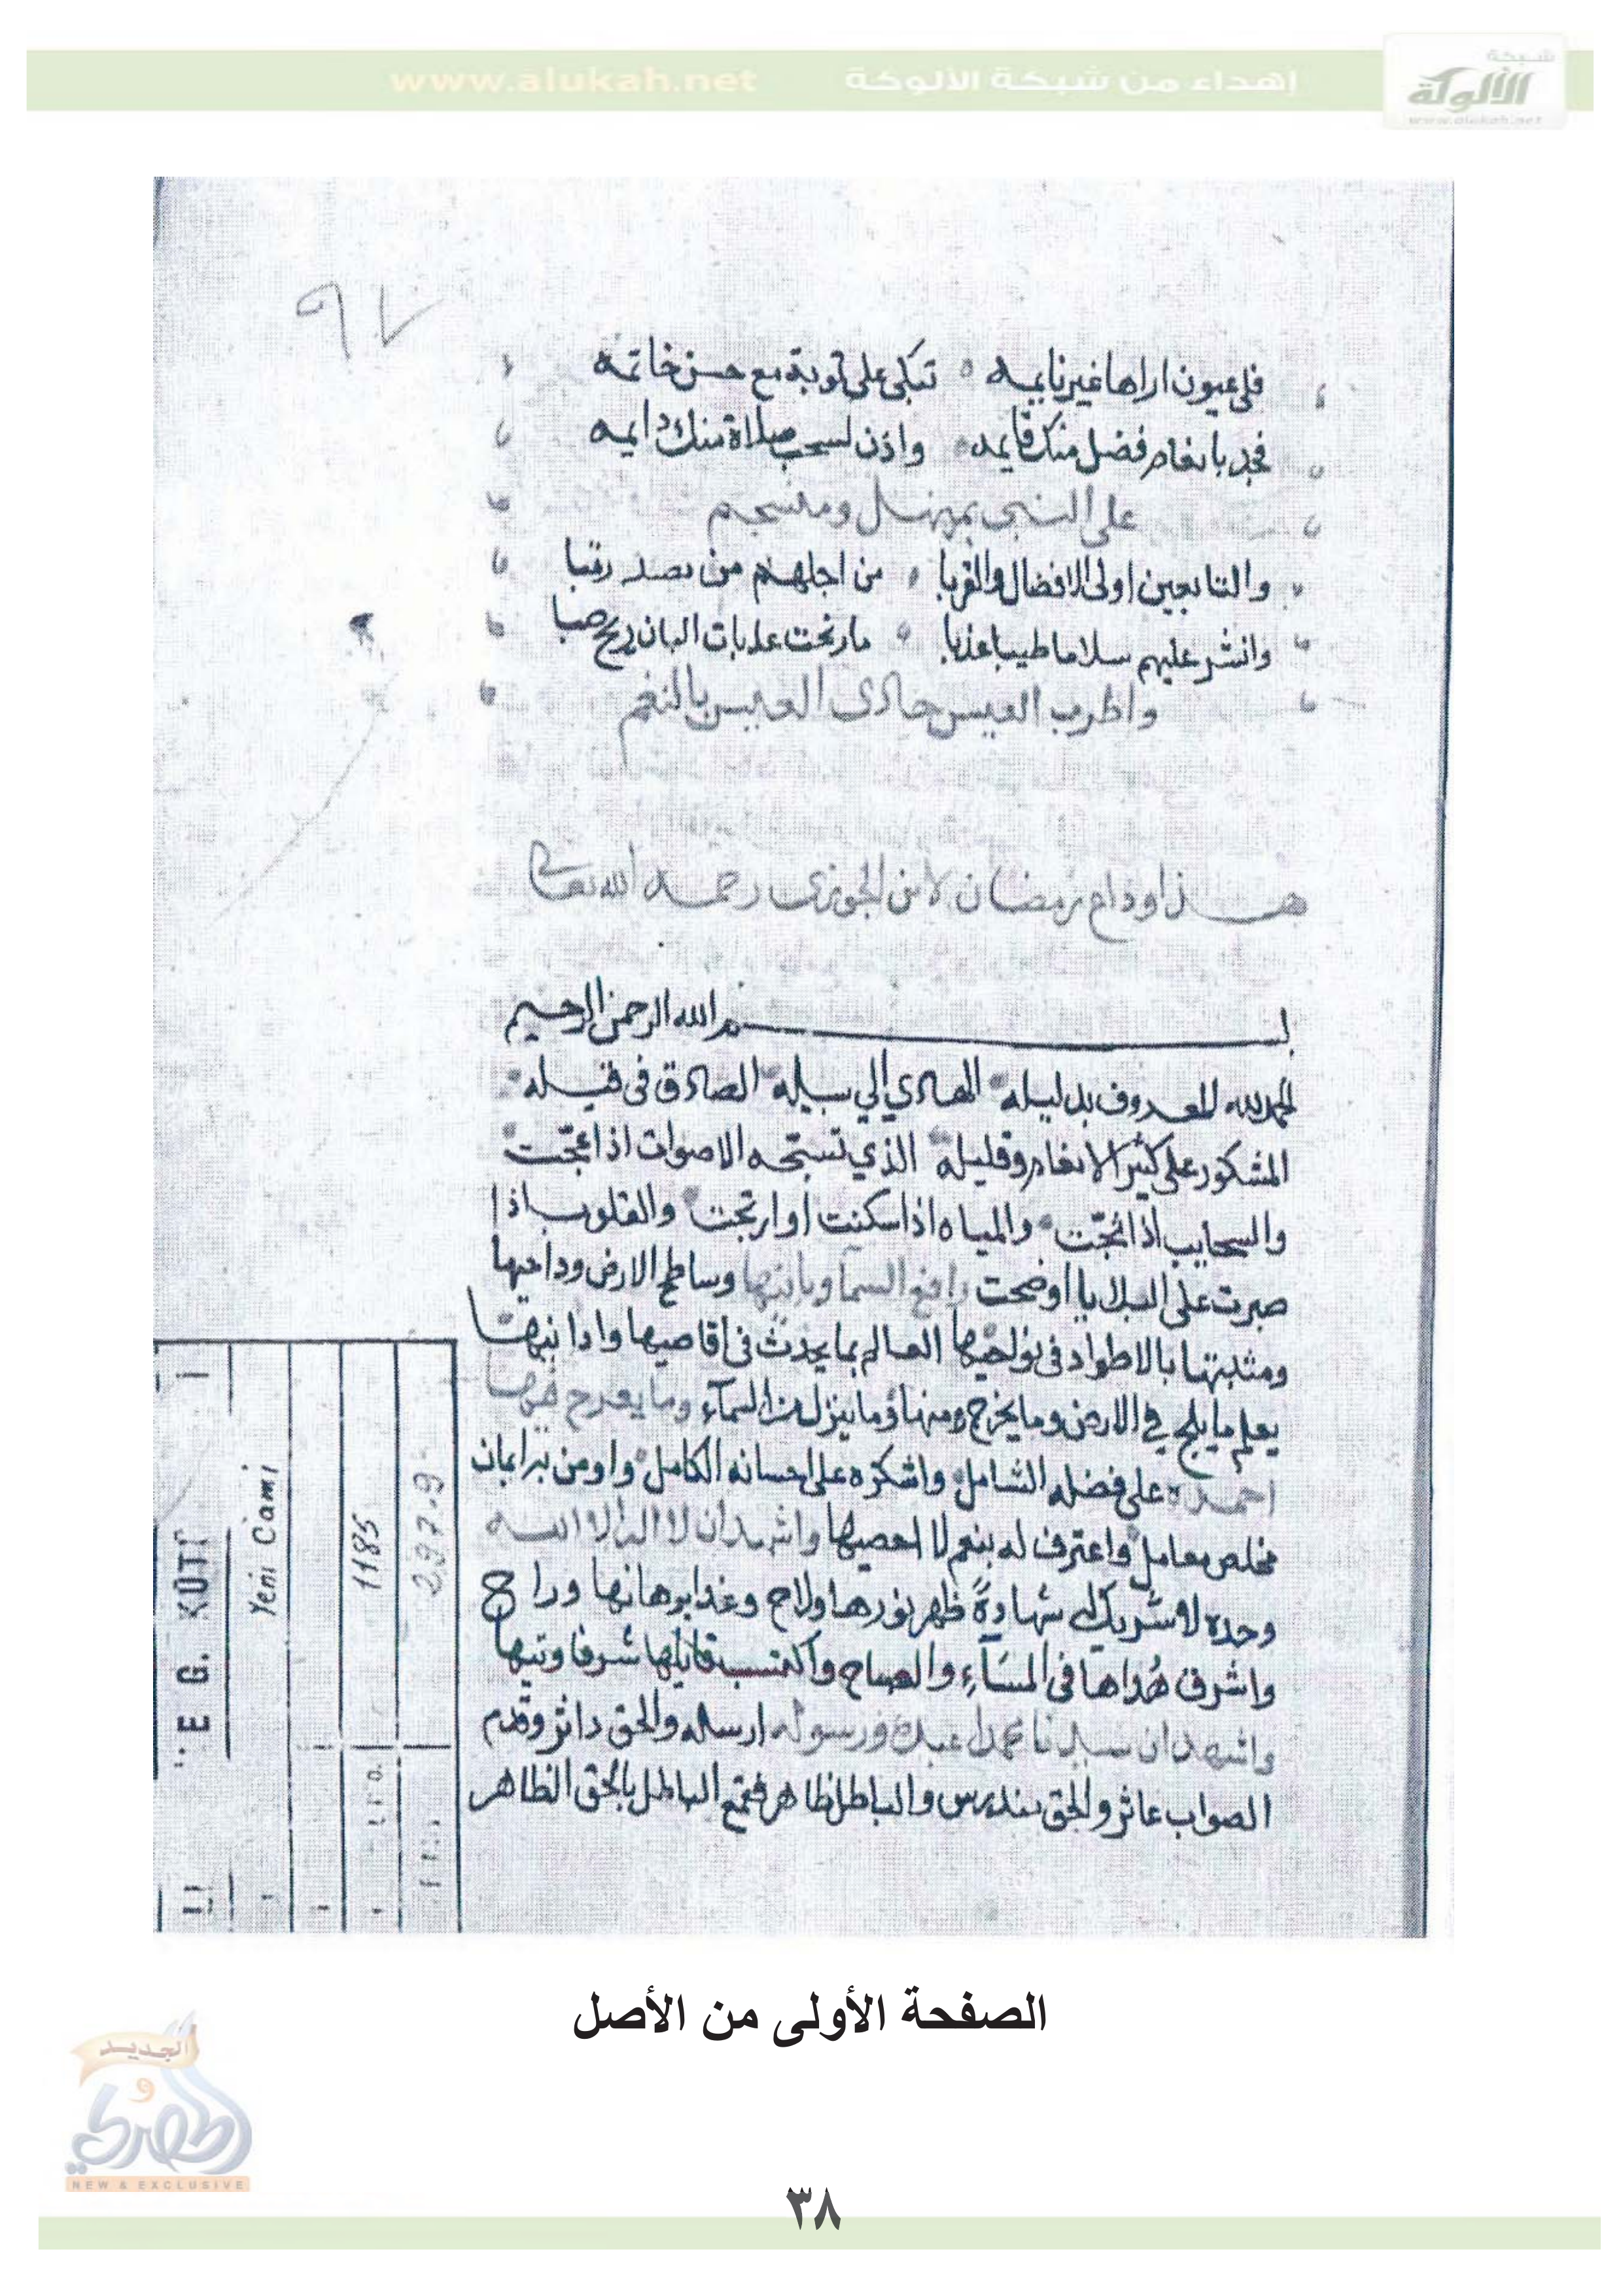 شبكة
الألوكة
www.alukah.net
إهداء من شبكة الألوكة
www.alukah.net
٩٧
فلي عيون اراها غير نايمه تبكي على توبة مع حسن خاتمه
فجد بانعام فضل منك قايمه واذن لسحب صلاة منك دايمه
على النبي بمنهل ومنسجم
والتابعين اولى الافضال والقربا من اجلهم من رتبا
وانشر عليهم سلاما طيبا عذبا ما رنحت عذبات البان ريح صبا
واطرب العيس حادى العيس بالنغم
هذا وداع رمضان لابن الجوزى رحمه الله تعالى
بسم الله الرحمن الرحيم
الحمد لله المعروف بدليله الهادي الي سبيله الصادق فى قيله
المشكور على كثير الانعام وقليله الذي تسبحه الاصوات اذا عجّت
والسحايب اذا ثجّت والمياه اذا سكنت او ارتجت والقلوب اذا
صبرت على البلايا او ضجت رافع السما وبانيها وساطح الارض وداحيها
ومثبتها بالاطواد فى نواحيها العالم بما يحدث فى اقاصيها وادانيها
يعلم ما يلج في الارض وما يخرج منها وما ينزل من السمآء وما يعرج فيها
احمده على فضله الشامل واشكره على احسانه الكامل واومن به ايمان
مخلص معامل واعترف له بنعم لا احصيها واشهد ان لا اله الا الله
وحده لا شريك له شهادةً ظهر نورها ولاح وغدا برهانها وراح
واشرق هُداها فى المسَآءِ والصباح واكتسب قايلها شرفا وتيها
واشهد ان سيدنا محمدا عبده ورسوله ارسله والحق داثر وقدم
الصواب عاثر والحق مندرس والباطل ظاهر فقمع الباطل بالحق الظاهر
E G. KÜTÜ
Yeni Cami
1185
297.9
الصفحة الأولى من الأصل
الجديد
و
الحصري
NEW & EXCLUSIVE
٣٨